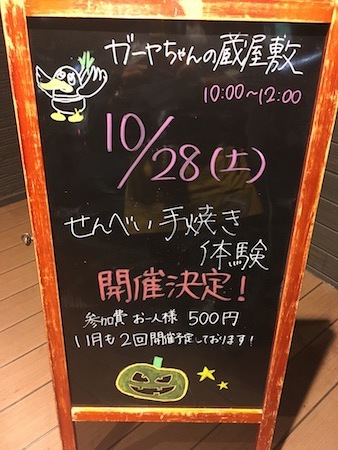 ガーヤちゃんの蔵屋敷
10:00~12:00
10/28(土)
せんべい手焼き
体験
開催決定!
参加費 お一人様 500円
11月も2回開催予定しております!